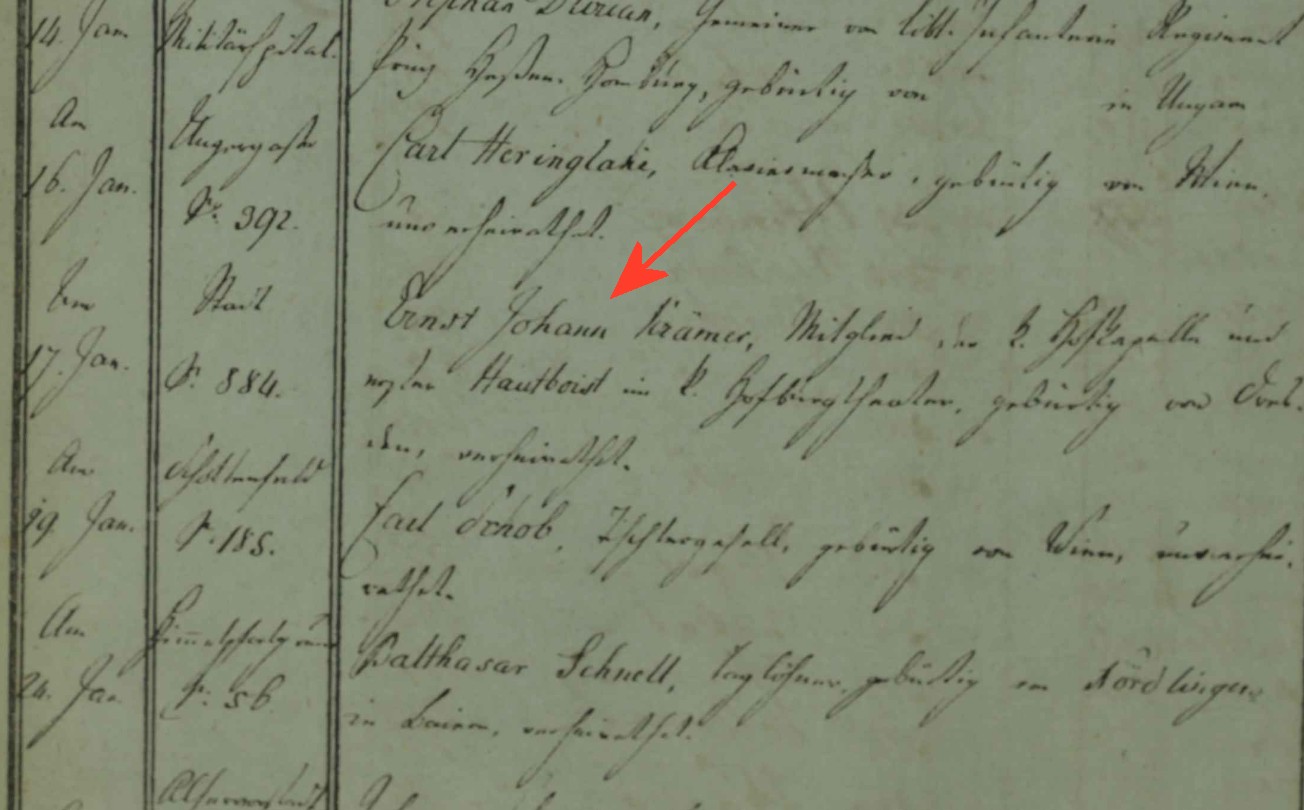 14. Jan. Militärspital. Stephan Durian, Gemeiner von löbl. Infanterie Regiment
Prinz Hessen-Homburg, gebürtig von in Ungarn
Am Ungergasse Carl Heringlake, Klaviermacher, gebürtig von Wien,
16. Jan. Nr. 392. unverheirathet.
Am Stadt Ernst Johann Krämer, Mitglied der k. Hofkapelle und
17. Jan. Nr. 884. erster Hautboist im k. Hofburgtheater, gebürtig von Dres-
den, verheirathet.
Am Schottenfeld
Jan. Nr. 185. Carl Schob, Tischlergesell, gebürtig von Wien, unverhei-
rathet.
Am Himmelpfortgrund Balthasar Schnell, Taglöhner, gebürtig von Nördlingen
24. Jan. Nr. 56. in Baiern, verheirathet.
Alservorstadt